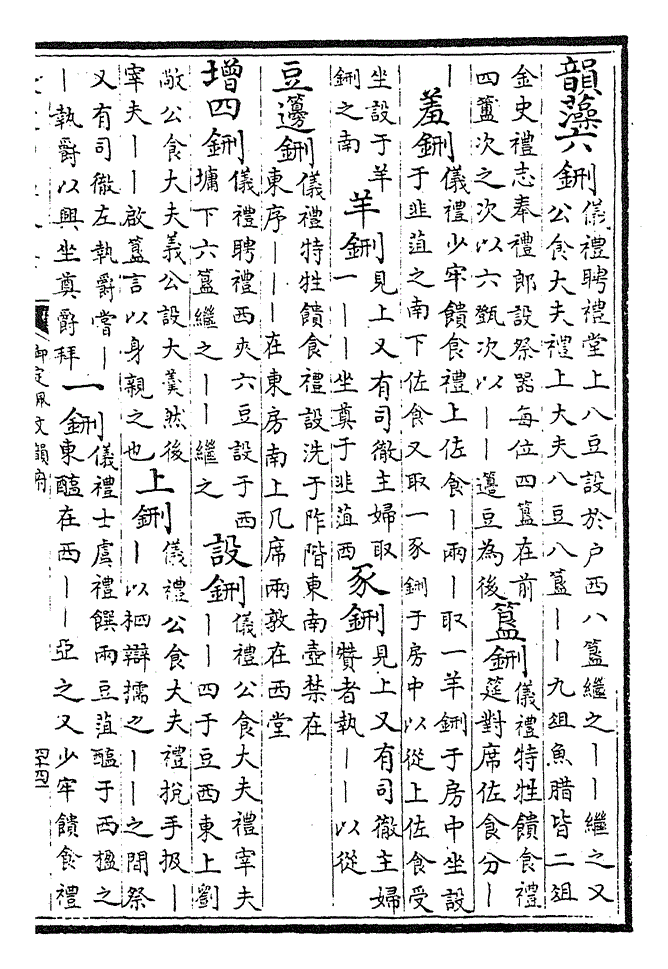 韻藻六鉶儀禮聘禮堂上八豆設於戶西八簋繼之丨丨繼之又
公食大夫禮上大夫八豆八簋丨丨九俎魚腊皆二俎
金史禮志奉禮郎設祭器每位四簋在前
四簠次之次以六㽅次以丨丨籩豆為後簋鉶儀禮特牲饋食禮
筵對席佐食分丨
丨羞鉶儀禮少牢饋食禮上佐食丨兩丨取一羊鉶于房中坐設
于韭菹之南下佐食又取一豕鉶于房中以從上佐食受
坐設于羊
鉶之南羊鉶見上又有司徹主婦取
一丨丨坐奠于韭菹西豕鉶見上又有司徹主婦
贊者執丨丨以從
豆籩鉶儀禮特牲饋食禮設洗于阼階東南壺禁在
東序丨丨丨在東房南上几席兩敦在西堂
增四鉶儀禮聘禮西夾六豆設于西
墉下六簋繼之丨丨繼之設鉶儀禮公食大夫禮宰夫
丨丨四于豆西東上劉
敞公食大夫義公設大羹然後
宰夫丨丨啟簋言以身親之也上鉶儀禮公食大夫禮挩手扱丨
丨以柶辯擩之丨丨之間祭
又有司徹左執爵嘗丨
丨執爵以興坐奠爵拜一鉶儀禮士虞禮饌兩豆菹醢于西楹之
東醢在西丨丨亞之又少牢饋食禮
御定佩文韻府